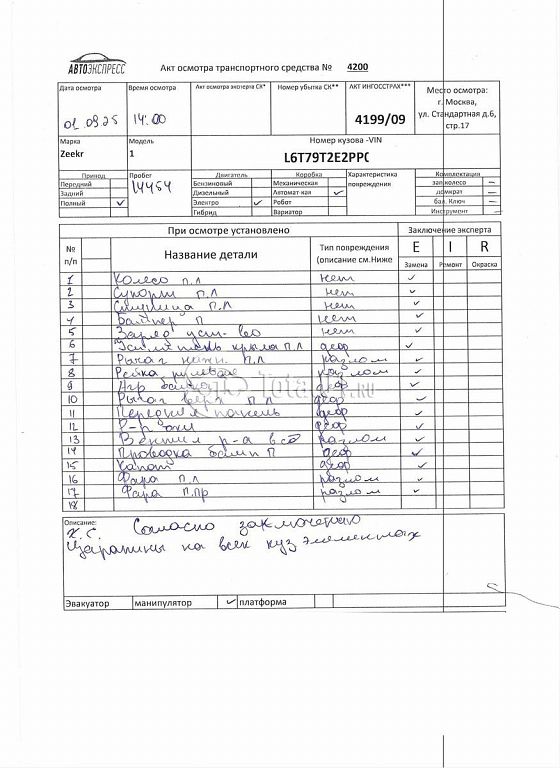 АВТОЭКСПРЕСС
Акт осмотра транспортного средства № 4200
Дата осмотра Время осмотра Акт осмотра эксперта СК* Номер убытка СК** АКТ ИНГОССТРАХ*** Место осмотра:
г. Москва,
ул. Стандартная д.6,
стр.17
01 09.25 14:00 4199/09
Марка Модель Номер кузова -VIN
Zeekr 1 L6T79T2E2PPC
Привод Пробег Двигатель Коробка Характеристика повреждения Комплектация
Передний 14454 Бензиновый Механическая зап колесо –
Задний Дизельный Автомат-кая ✓ домкрат –
Полный ✓ Электро ✓ Робот бал. Ключ –
Гибрид Вариатор Инструмент –
При осмотре установлено Заключение эксперта
№ п/п Название детали Тип повреждения (описание см.Ниже E I R
Замена Ремонт Окраска
1 Колесо п.л нет ✓
2 Суппорт п.л нет ✓
3 п.л нет ✓
4 Бампер П нет ✓
5 уст-во нет ✓
6 крыла п.л деф ✓
7 Рычаг нижн. п.л разлом ✓
8 Рейка рулевая разлом ✓
9 балка деф ✓
10 Рычаг верх п.л деф ✓
11 Передняя панель деф ✓
12 деф ✓
13 р-а разлом ✓
14 Проводка бамп П деф ✓
15 Капот деф ✓
16 Фара п.л разлом ✓
17 Фара п.пр разлом ✓
18
Total .RU
Описание:
Х.С. Согласно заключению
Царапины на всех куз элементах
Эвакуатор манипулятор ✓ платформа